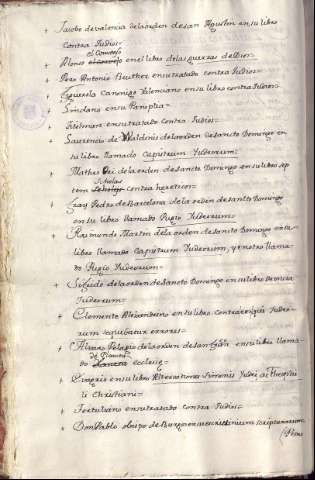 + Jacobo de valencia dela orden de san Agustin en su libro
contra Judios=
el Converso
+ Alonso en el libro de las guerras de Dios=
+ Pero Antonio Beuther en su tratado contra Judios=
+ Ezquerola Canonigo Valenciano en su libro contra Judios=
+ Lindano en su Panoplia=
+ Titelman en su tratado contra Judios=
+ Laurencio de Waldinis dela orden de sancto Domingo en
su libro llamado Capistrum Judeorum=
+ Mathias dela orden de sancto Domingo en su libro sep
tem Scholas contra hereticos=
+ fray Pedro de Barcelona dela orden de sancto Domingo
en su libro llamado Pugio Judeorum=
+ Raimundo Martin dela orden de sancto Domingo en su
libro llamado Capistrum Judeorum, y en otro llama-
do Pugio Judeorum=
+ Sigisdo dela orden de sancto Domingo en su libro
Judeorum=
+ Clemente Alexandrino en su libro contra Judeo-
rum sequibatur errores=
+ Alvaro Pelagio dela orden de san en su libro llama-
do de Planctu ecclesię=
+ Evagrio en su libro Altercationes Simonis Judei ac Theophi
li Christiani=
+ Tertuliano en su tratado contra Judios=
+ Don Pablo obispo de Burgos en su scrutinium scripturarum